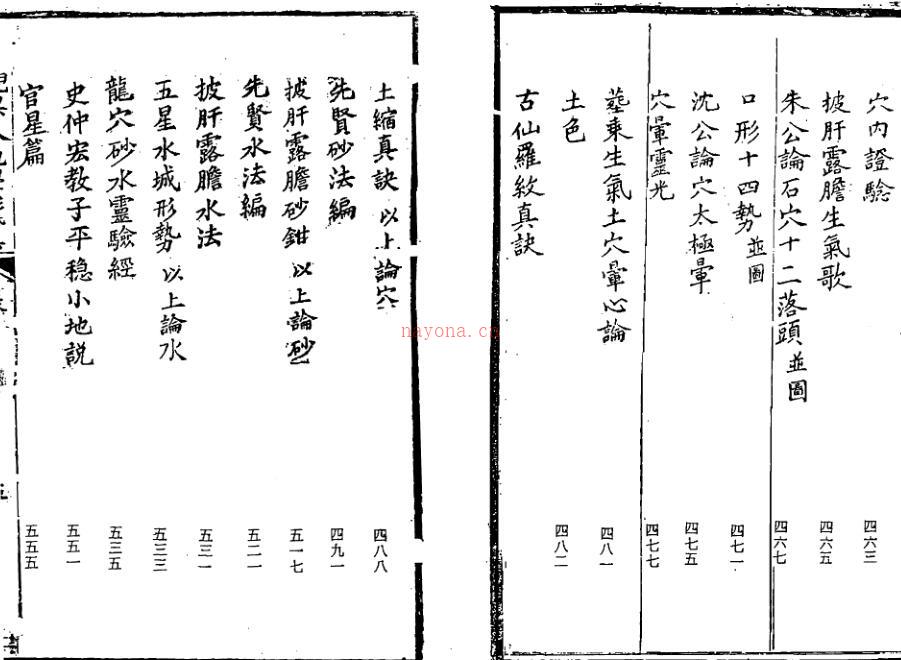 穴內證驗 四六三
披肝露膽生氣歌 四六五
朱公論石穴十二落頭 並圖 四六七
口形十四勢 並圖 四七一
沈公論穴太極暈 四七五
穴暈靈光 四七七
塟乘生氣土穴暈心論 四八一
土色 四八二
古仙羅紋真訣
土縮真訣 以上論穴 四八八
先賢砂法編 四九一
披肝露膽砂鉗 以上論砂 五一七
先賢水法編 五二一
披肝露膽水法 五三一
五星水城形勢 以上論水 五三三
龍穴砂水靈驗經 五三五
史仲宏教子平穩小地説 五五一
官星篇 五五五
nayona.cn